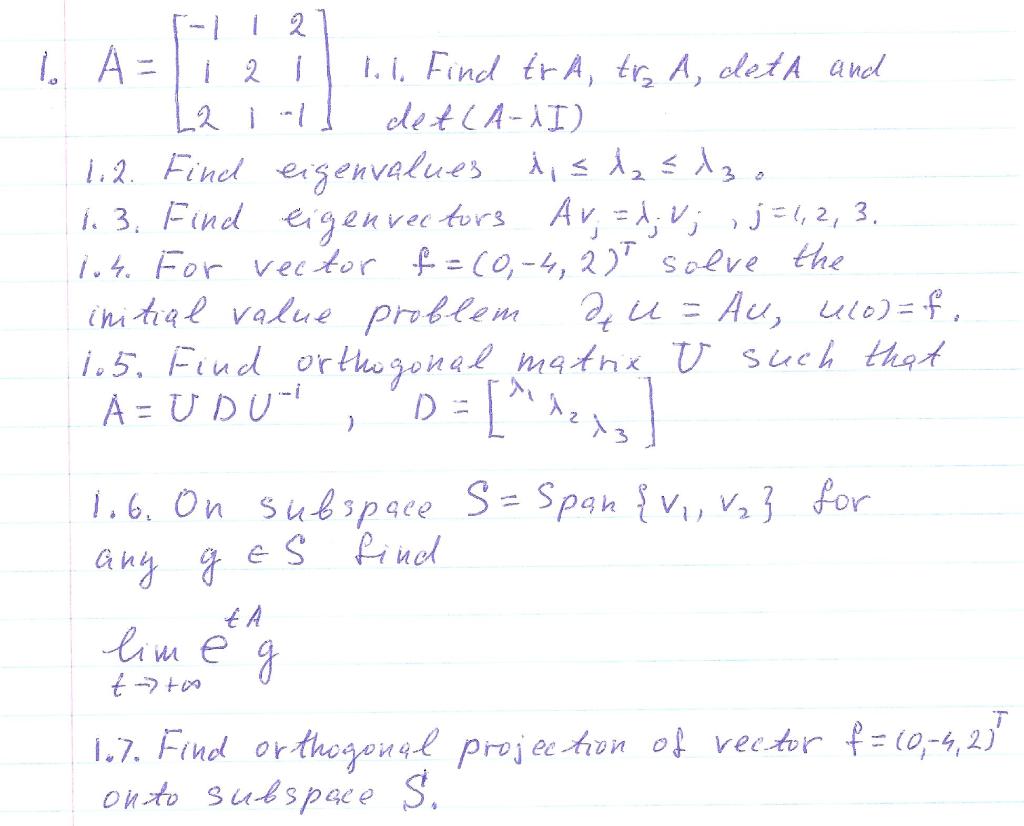 1. A = [-1 1 2
1 2 1
2 1 -1] 1.1. Find tr A, tr₂ A, det A and
det(A-λI)
1.2. Find eigenvalues λ₁ ≤ λ₂ ≤ λ₃.
1.3. Find eigenvectors Avⱼ = λⱼvⱼ, j=1,2,3.
1.4. For vector f = (0,-4,2)ᵀ solve the
initial value problem ∂ₜu = Au, u(0)=f.
1.5. Find orthogonal matrix U such that
A = UDU⁻¹, D = [λ₁ λ₂ λ₃]
1.6. On subspace S = Span {v₁, v₂} for
any g ∈ S find
lim e^{tA} g
t→+∞
1.7. Find orthogonal projection of vector f=(0,-4,2)ᵀ
onto subspace S.